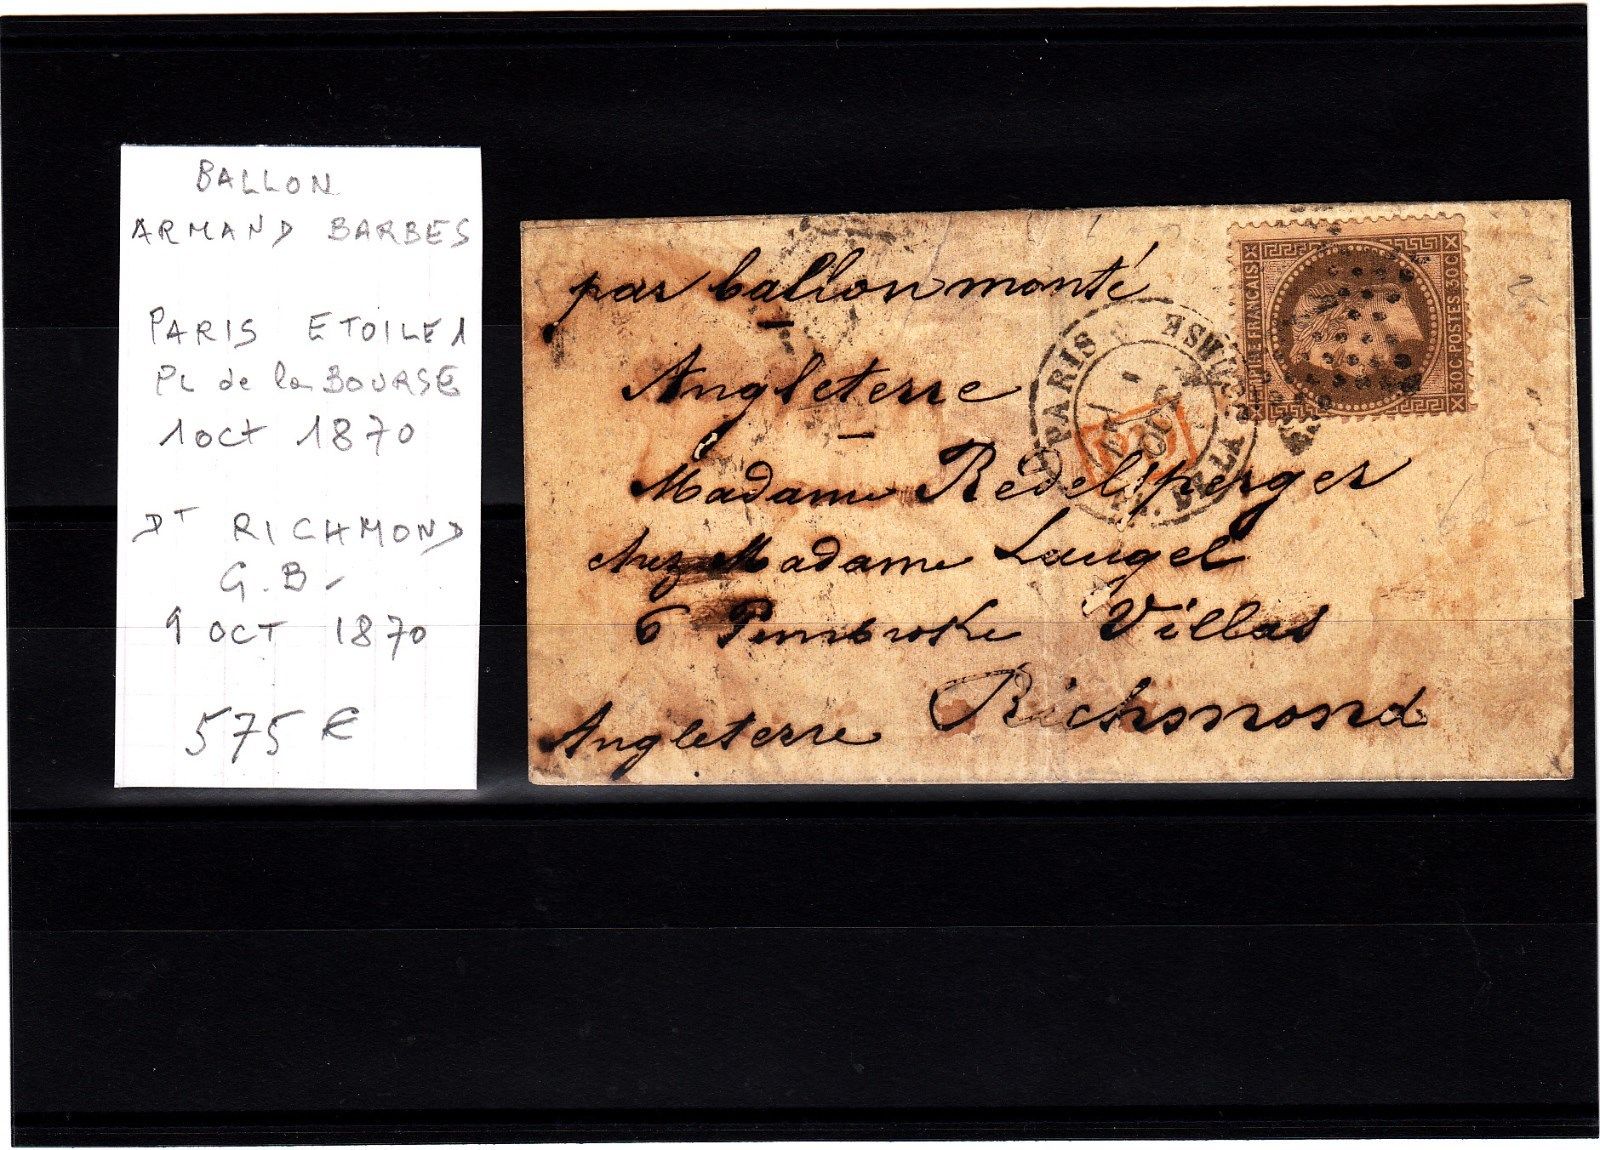 BALLON
ARMAND BARBES
PARIS ETOILE 1
PL de la BOURSE
1 OCT 1870
DT RICHMOND
G.B-
9 OCT 1870
575 €
par ballon monté
Angleterre
Madame Redelsperger
chez Madame Laugel
6 Pembroke Villas
Richmond
Angleterre
PARIS
PL. DE LA BOURSE
OCT.
PD
EMPIRE FRANÇAIS
30 C. POSTES 30 C